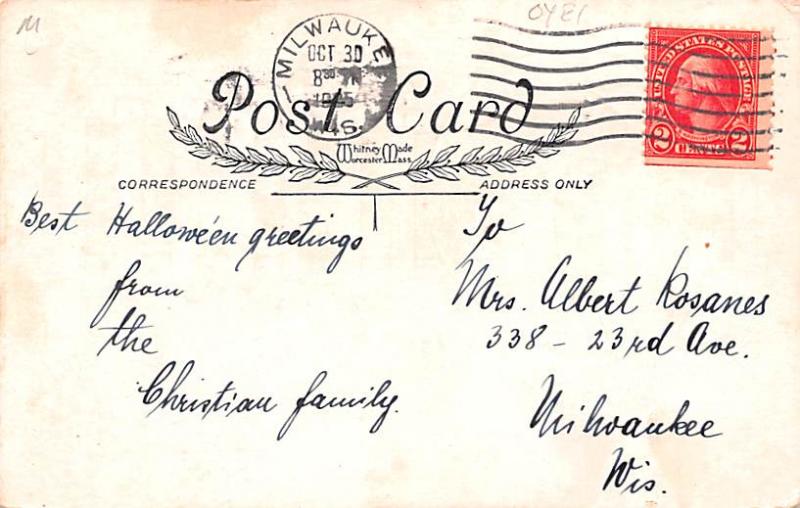 M
0421
MILWAUKEE
OCT 30
8 30
WIS.
UNITED STATES POSTAGE
2 CENTS 2
Post Card
Whitney Made
Worcester, Mass.
CORRESPONDENCE
ADDRESS ONLY
Best Hallowe'en greetings
from
the
Christian family.
To
Mrs. Albert Rosanes
338 - 23rd Ave.
Milwaukee
Wis.